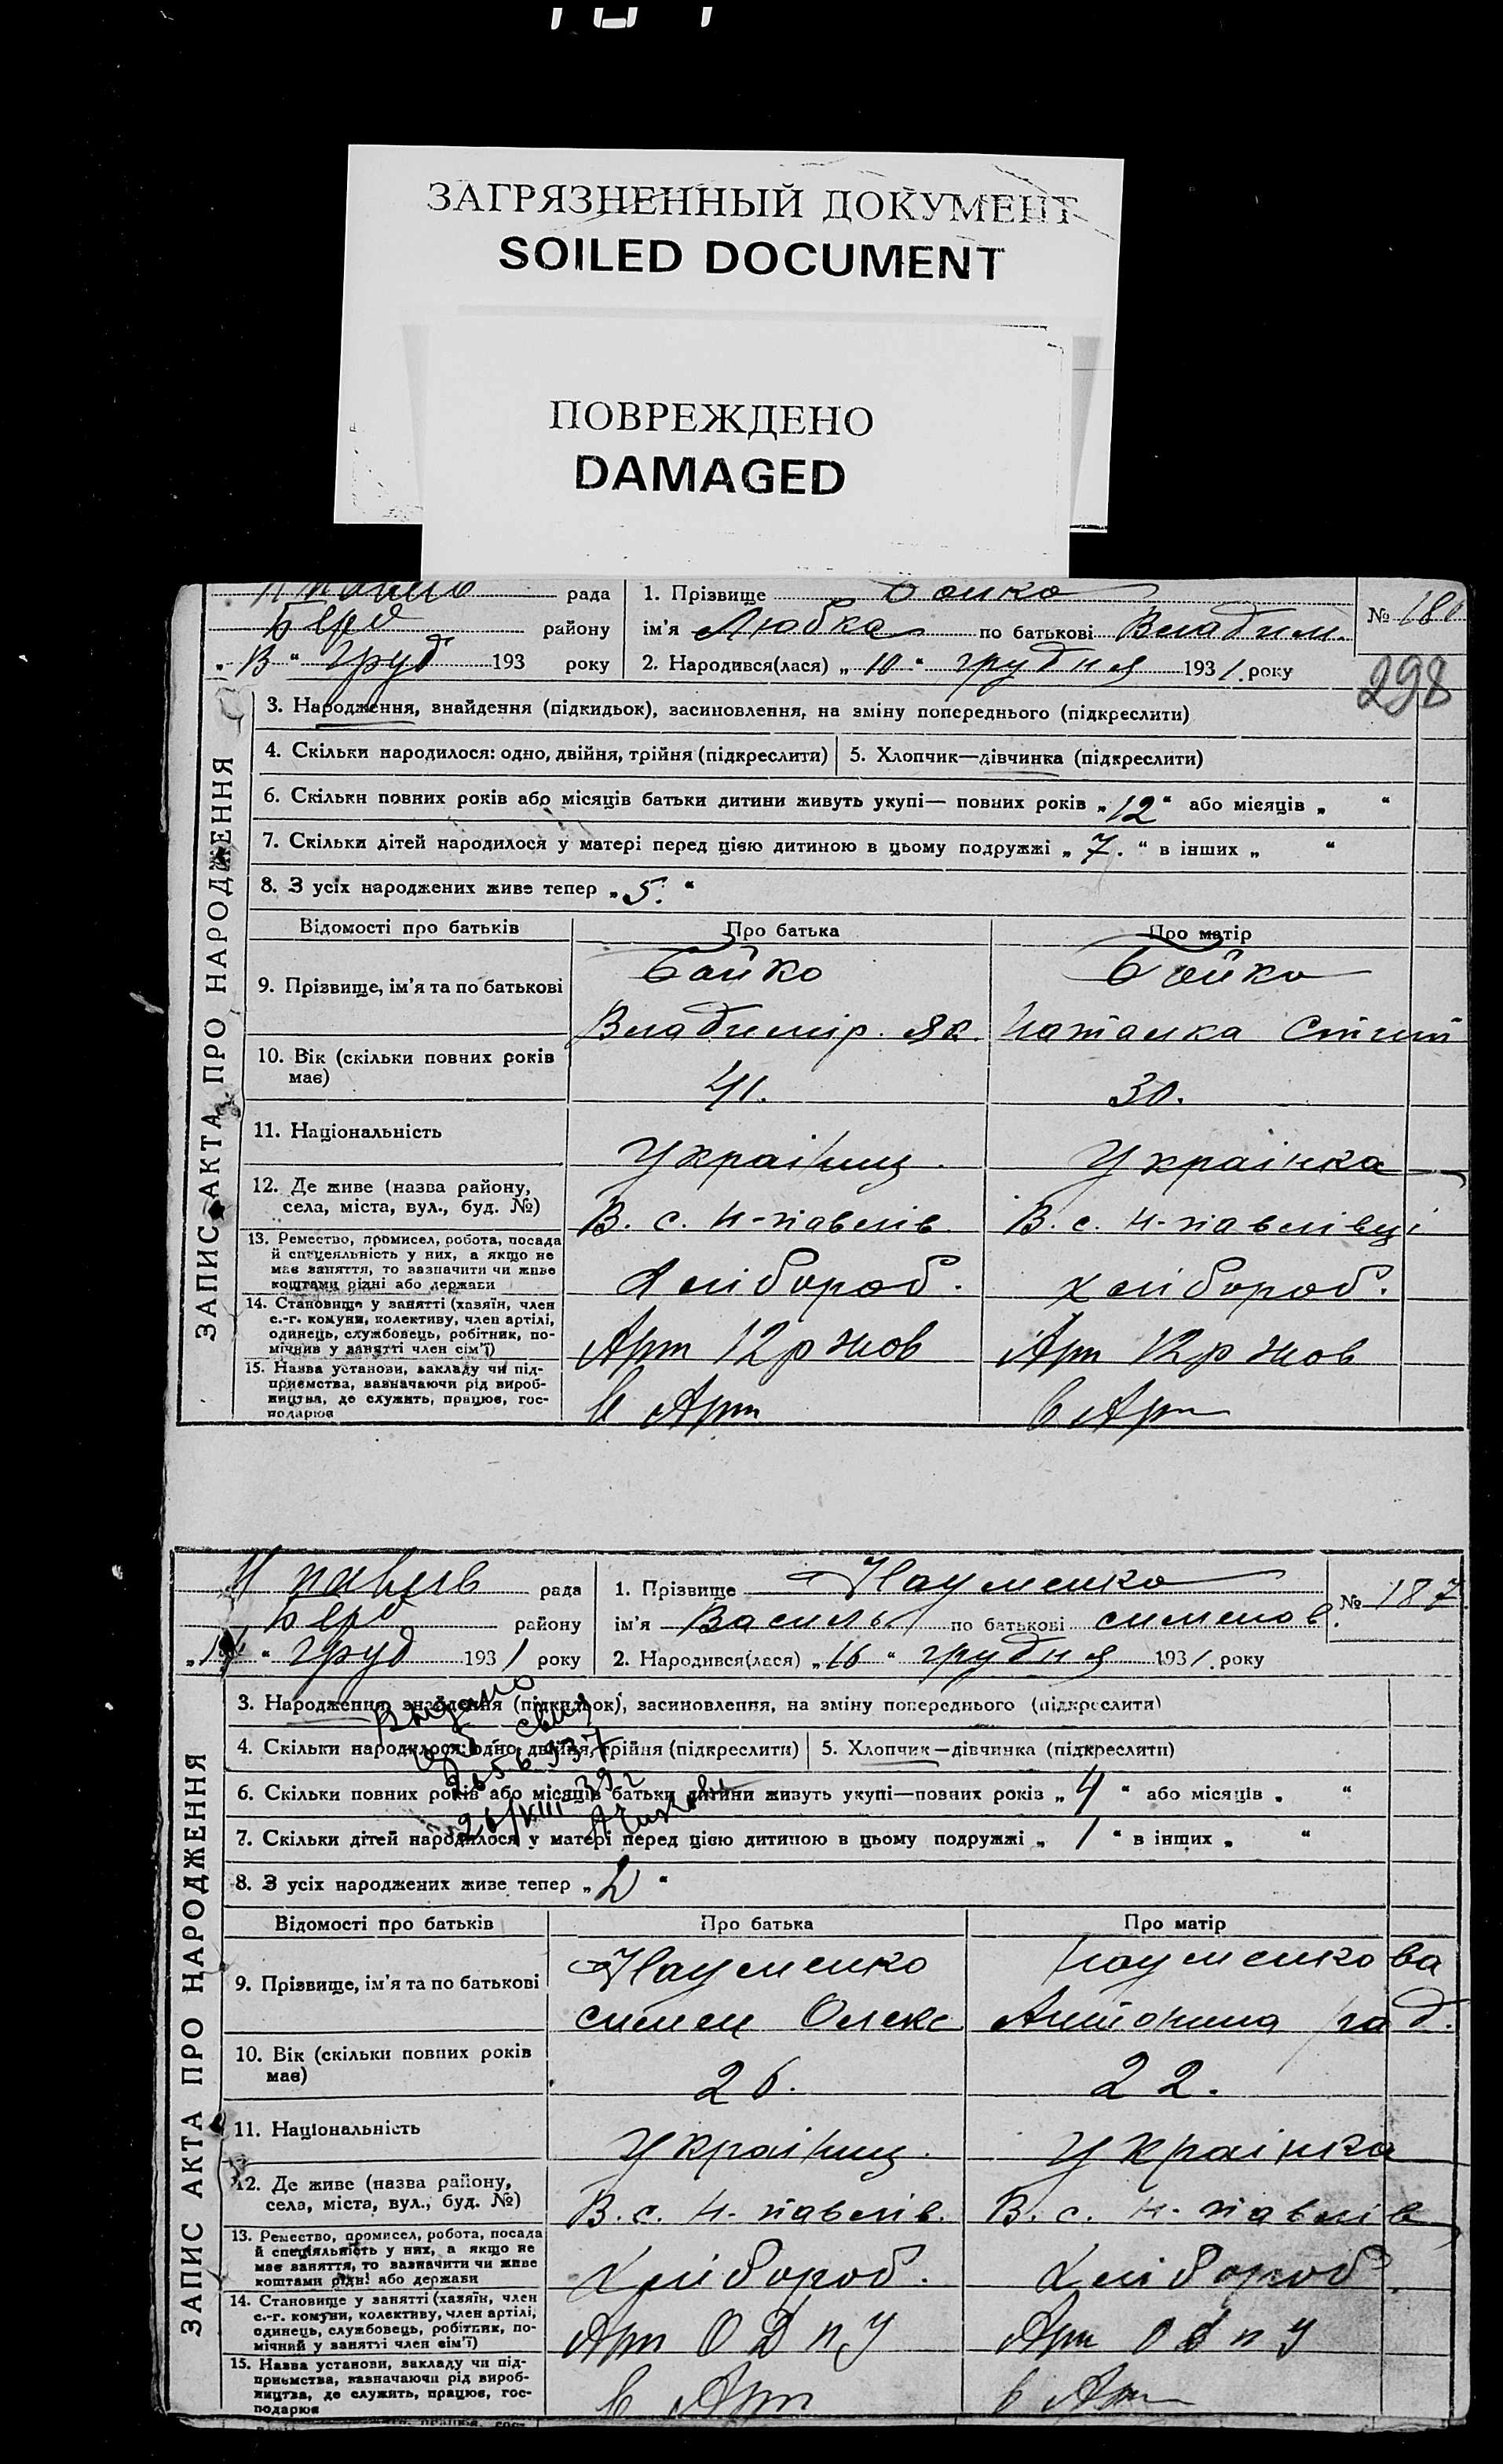 ЗАГРЯЗНЕННЫЙ ДОКУМЕНТ
SOILED DOCUMENT
ПОВРЕЖДЕНО
DAMAGED
рада
1. Прізвище Бойко
Берд району
ім'я Любка по батькові Владим.
№ 18
"В" груд 193 року
2. Народився(лася) „10“ грудня 1931. року
298
ЗАПИС АКТА ПРО НАРОДЖЕННЯ
3. Народження, знайдення (підкидьок), засиновлення, на зміну попереднього (підкреслити)
4. Скільки народилося: одно, двійня, трійня (підкреслити)
5. Хлопчик—дівчинка (підкреслити)
6. Скільки повних років або місяців батьки дитини живуть укупі— повних років „12“ або місяців „ “
7. Скільки дітей народилося у матері перед цією дитиною в цьому подружжі „7.“ в інших „ “
8. З усіх народжених живе тепер „5.“
Відомості про батьків
Про батька
Про матір
9. Прізвище, ім'я та по батькові
Бойко
Бойко
Владимір. Як.
Наталка
10. Вік (скільки повних років
має)
41.
30.
11. Національність
Українц.
Українка
12. Де живе (назва району,
села, міста, вул., буд. №)
В. с. Н-павлів
В. с. Н-павлівці
13. Ремество, промисел, робота, посада
й спеціяльність у них, а якщо не
має заняття, то зазначити чи живе
коштами рідні або держави
Хлібороб.
хлібороб.
14. Становище у занятті (хазяїн, член
с.-г. комуни, колективу, член артілі,
одинець, службовець, робітник, по-
мічний у занятті член сім'ї)
Арт 12 р жов
Арт 12 р жов
15. Назва установи, закладу чи під-
приємства, зазначаючи рід вироб-
ництва, де служить, працює, гос-
подарює
в Арт
в Арт
Н павлів рада
1. Прізвище Науменко
№ 187.
Берд району
ім'я Василь по батькові сименов.
груд 1931 року
2. Народився(лася) „16“ грудня 1931. року
ЗАПИС АКТА ПРО НАРОДЖЕННЯ
3. Народження, знайдення (підкидьок), засиновлення, на зміну попереднього (підкреслити)
Видано
4. Скільки народилося: одно, двійня, трійня (підкреслити)
5. Хлопчик—дівчинка (підкреслити)
6. Скільки повних років або місяців батьки дитини живуть укупі—повних років „4“ або місяців „ “
7. Скільки дітей народилося у матері перед цією дитиною в цьому подружжі „1“ в інших „ “
8. З усіх народжених живе тепер „2“
Відомості про батьків
Про батька
Про матір
9. Прізвище, ім'я та по батькові
Науменко
Науменкова
симен Олекс
Антонина
10. Вік (скільки повних років
має)
26.
22.
11. Національність
Українц.
Українка
12. Де живе (назва району,
села, міста, вул., буд. №)
В. с. Н-павлів.
В. с. Н-павлів
13. Ремество, промисел, робота, посада
й спеціяльність у них, а якщо не
має заняття, то зазначити чи живе
коштами рідні або держави
Хлібороб.
Хлібороб.
14. Становище у занятті (хазяїн, член
с.-г. комуни, колективу, член артілі,
одинець, службовець, робітник, по-
мічний у занятті член сім'ї)
Арт О Д П У
Арт О Д П У
15. Назва установи, закладу чи під-
приємства, зазначаючи рід вироб-
ництва, де служить, працює, гос-
подарює
в Арт
в Арт